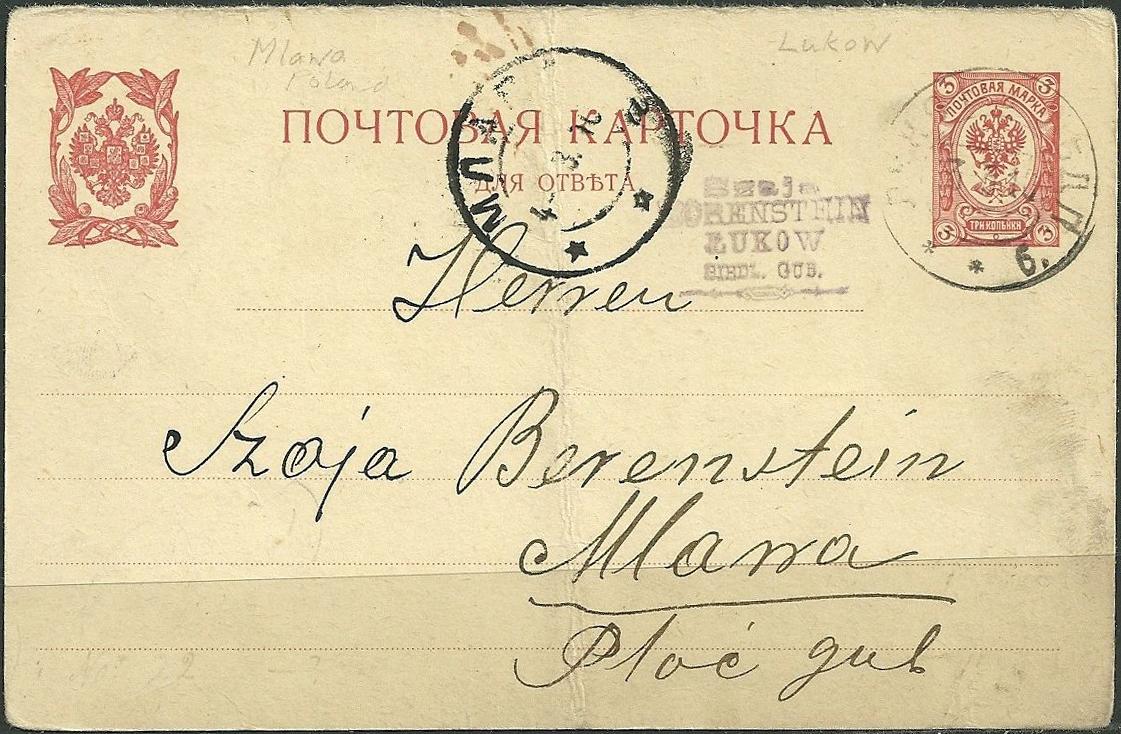 Mlawa
Poland
Lukow
ПОЧТОВАЯ КАРТОЧКА
ДЛЯ ОТВѢТА
3 3
ПОЧТОВАЯ МАРКА
ТРИ КОПѢЙКИ
3 3
Szaja
ŁUKOW
SIEDL. GUB.
6.
Herren
Szaja Berenstein
Mlawa
Ploć gub